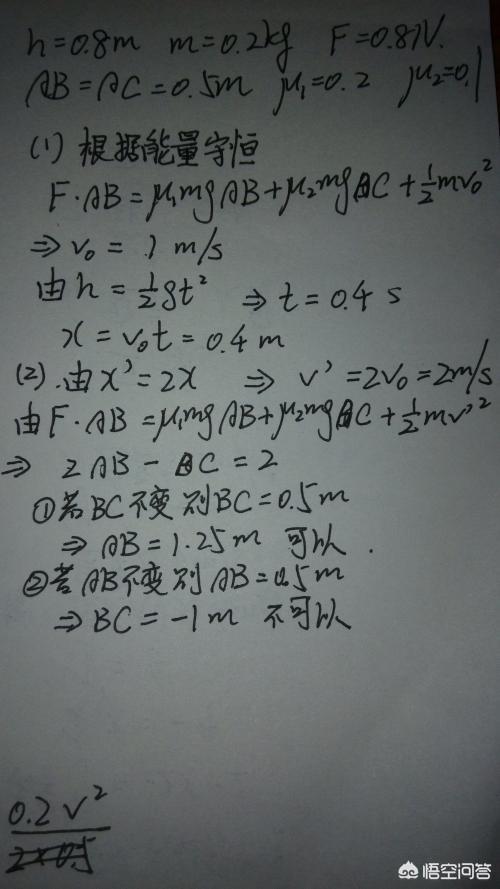 h=0.8m m=0.2kg F=0.8N.
AB=AC=0.5m μ₁=0.2 μ₂=0.1
(1) 根据能量守恒
F·AB=μ₁mgAB+μ₂mgBC+½mv₀²
⇒ v₀ = 1 m/s
由 h=½gt² ⇒ t=0.4 s
x=v₀t=0.4m
(2).由x'=2x ⇒ v'=2v₀=2m/s
由F·AB=μ₁mgAB+μ₂mgBC+½mv'²
⇒ 2AB-BC=2
①若BC不变 则BC=0.5m
⇒ AB=1.25m 可以.
②若AB不变则AB=0.5m
⇒ BC=-1m 不可以
0.2v²
2×0.5
悟空问答